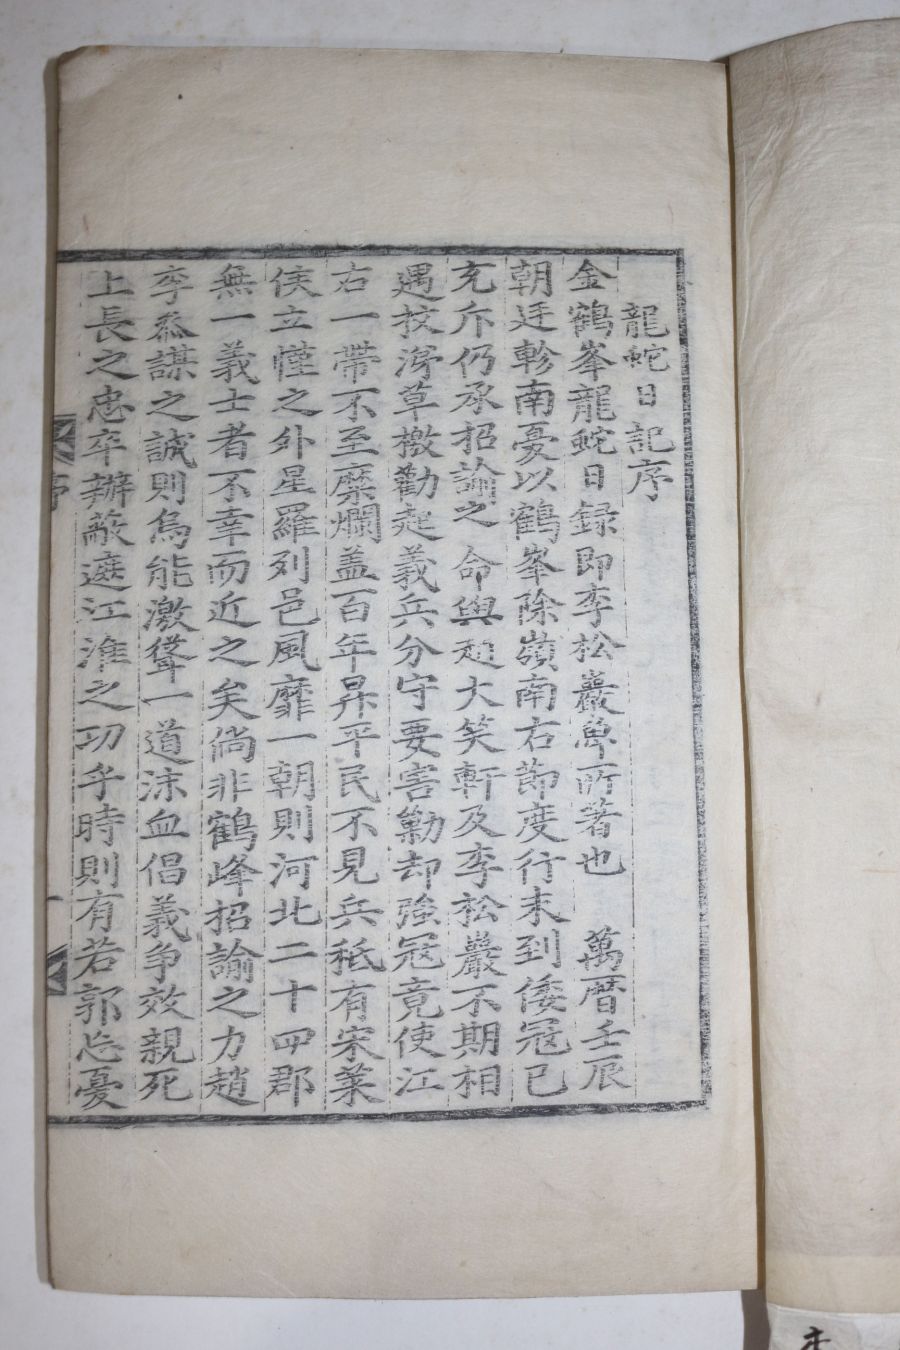 龍蛇日記序
金鶴峯龍蛇日録即李松巖魯所著也 萬曆壬辰
朝廷軫南憂以鶴峯除嶺南右節度行未到倭冦已
充斥仍承招諭之 命與趙大笑軒及李松巖不期相
遇挍涕草檄勸起義兵分守要害勦却強冦竟使江
右一帶不至糜爛盖百年昇平民不見兵秪有宋葉
侯立慬之外星羅列邑風靡一朝則河北二十四郡
無一義士者不幸而近之矣倘非鶴峰招諭之力趙
李叅謀之誠則烏能激聳一道沫血倡義争效親死
上長之忠卒辦蔽遮江淮之功乎時則有若郭忘憂
序
一